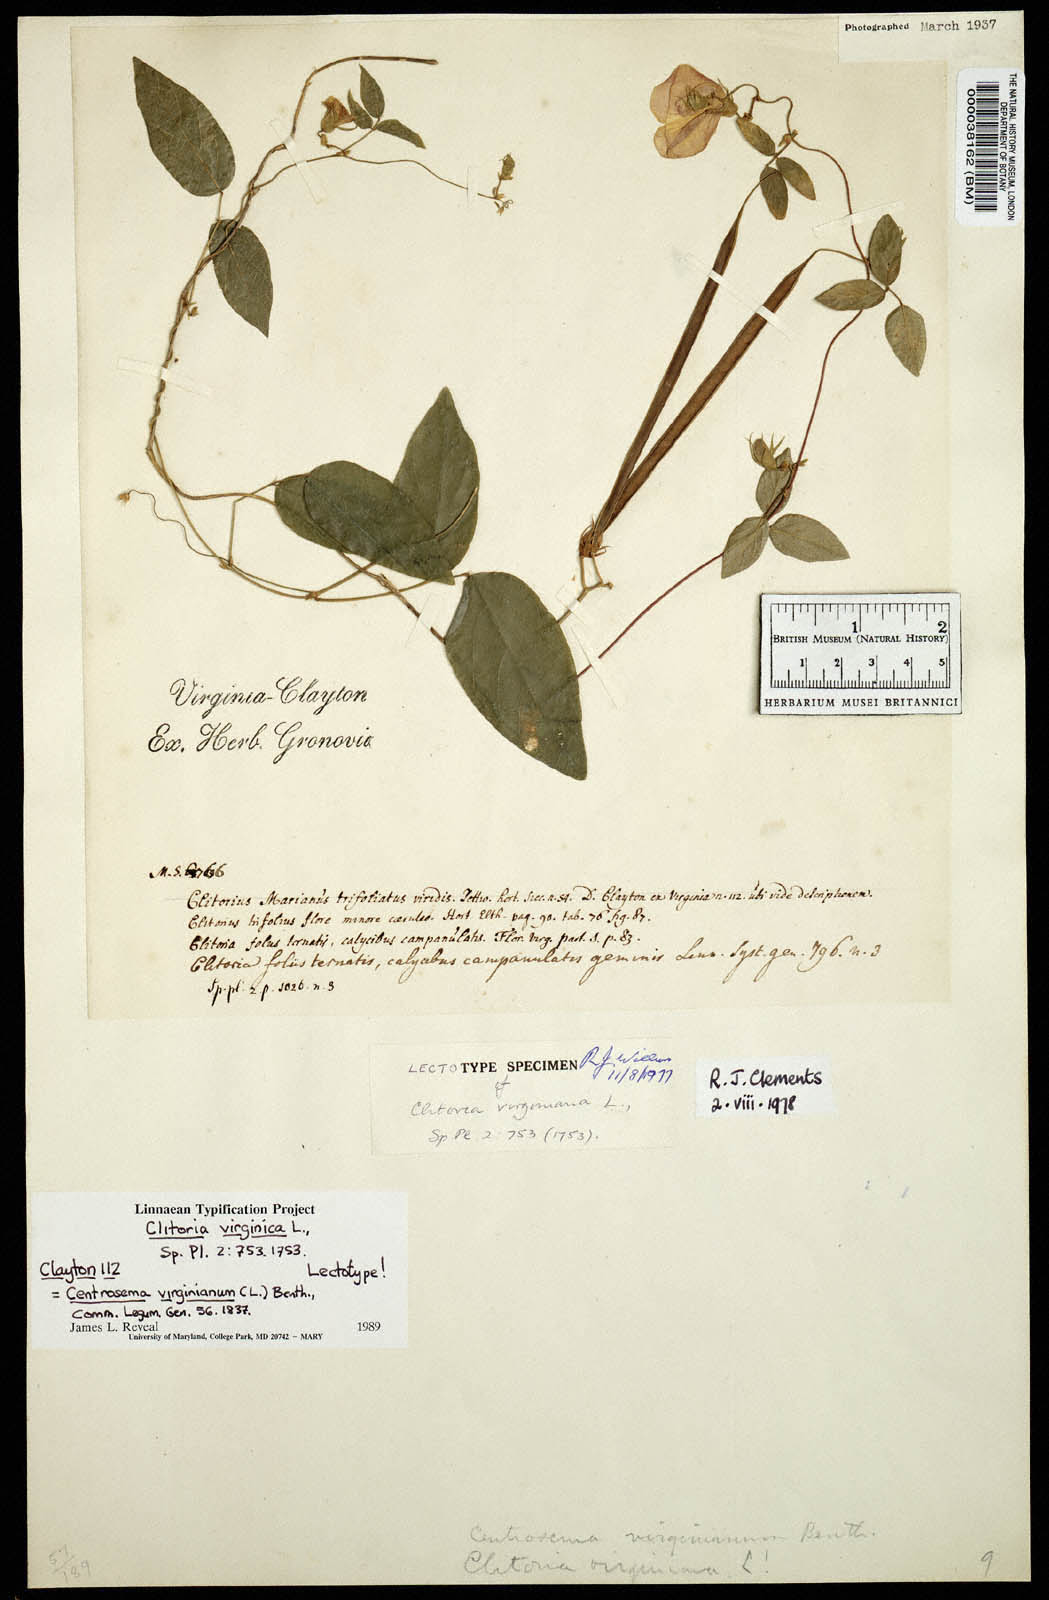 Photographed March 1937
THE NATURAL HISTORY MUSEUM, LONDON
DEPARTMENT OF BOTANY
000038162 (BM)
1 2
BRITISH MUSEUM (NATURAL HISTORY)
1 2 3 4 5
HERBARIUM MUSEI BRITANNICI
Virginia-Clayton
Ex. Herb. Gronovii
M.S.
Clitorius Marianus trifoliatus viridis. hort. sicc. n. 51. D. Clayton ex Virginia n. 112. ubi vide descriptionem.
Clitorius trifolius flore minore cæruleo. Hort. Elth. pag. 90. tab. 76 fig. 87.
Clitoria foliis ternatis, calycibus campanulatis. Flor. Virg. part. 1. p. 83.
Clitoria foliis ternatis, calycibus campanulatis geminis Linn. Syst. gen. 796. n. 3
Sp. pl. 2. p. 1026. n. 3
LECTOTYPE SPECIMEN
11/8/1977
of
Clitoria virginiana L.,
Sp. Pl. 2: 753 (1753).
R. J. Clements
2·viii·1978
Linnaean Typification Project
Clitoria virginica L.,
Sp. Pl. 2: 753. 1753.
Clayton 112 Lectotype!
= Centrosema virginianum (L.) Benth.,
Comm. Legum. Gen. 56. 1837.
James L. Reveal 1989
University of Maryland, College Park, MD 20742 – MARY
Centrosema virginianum Benth.
Clitoria virginiana L!
9